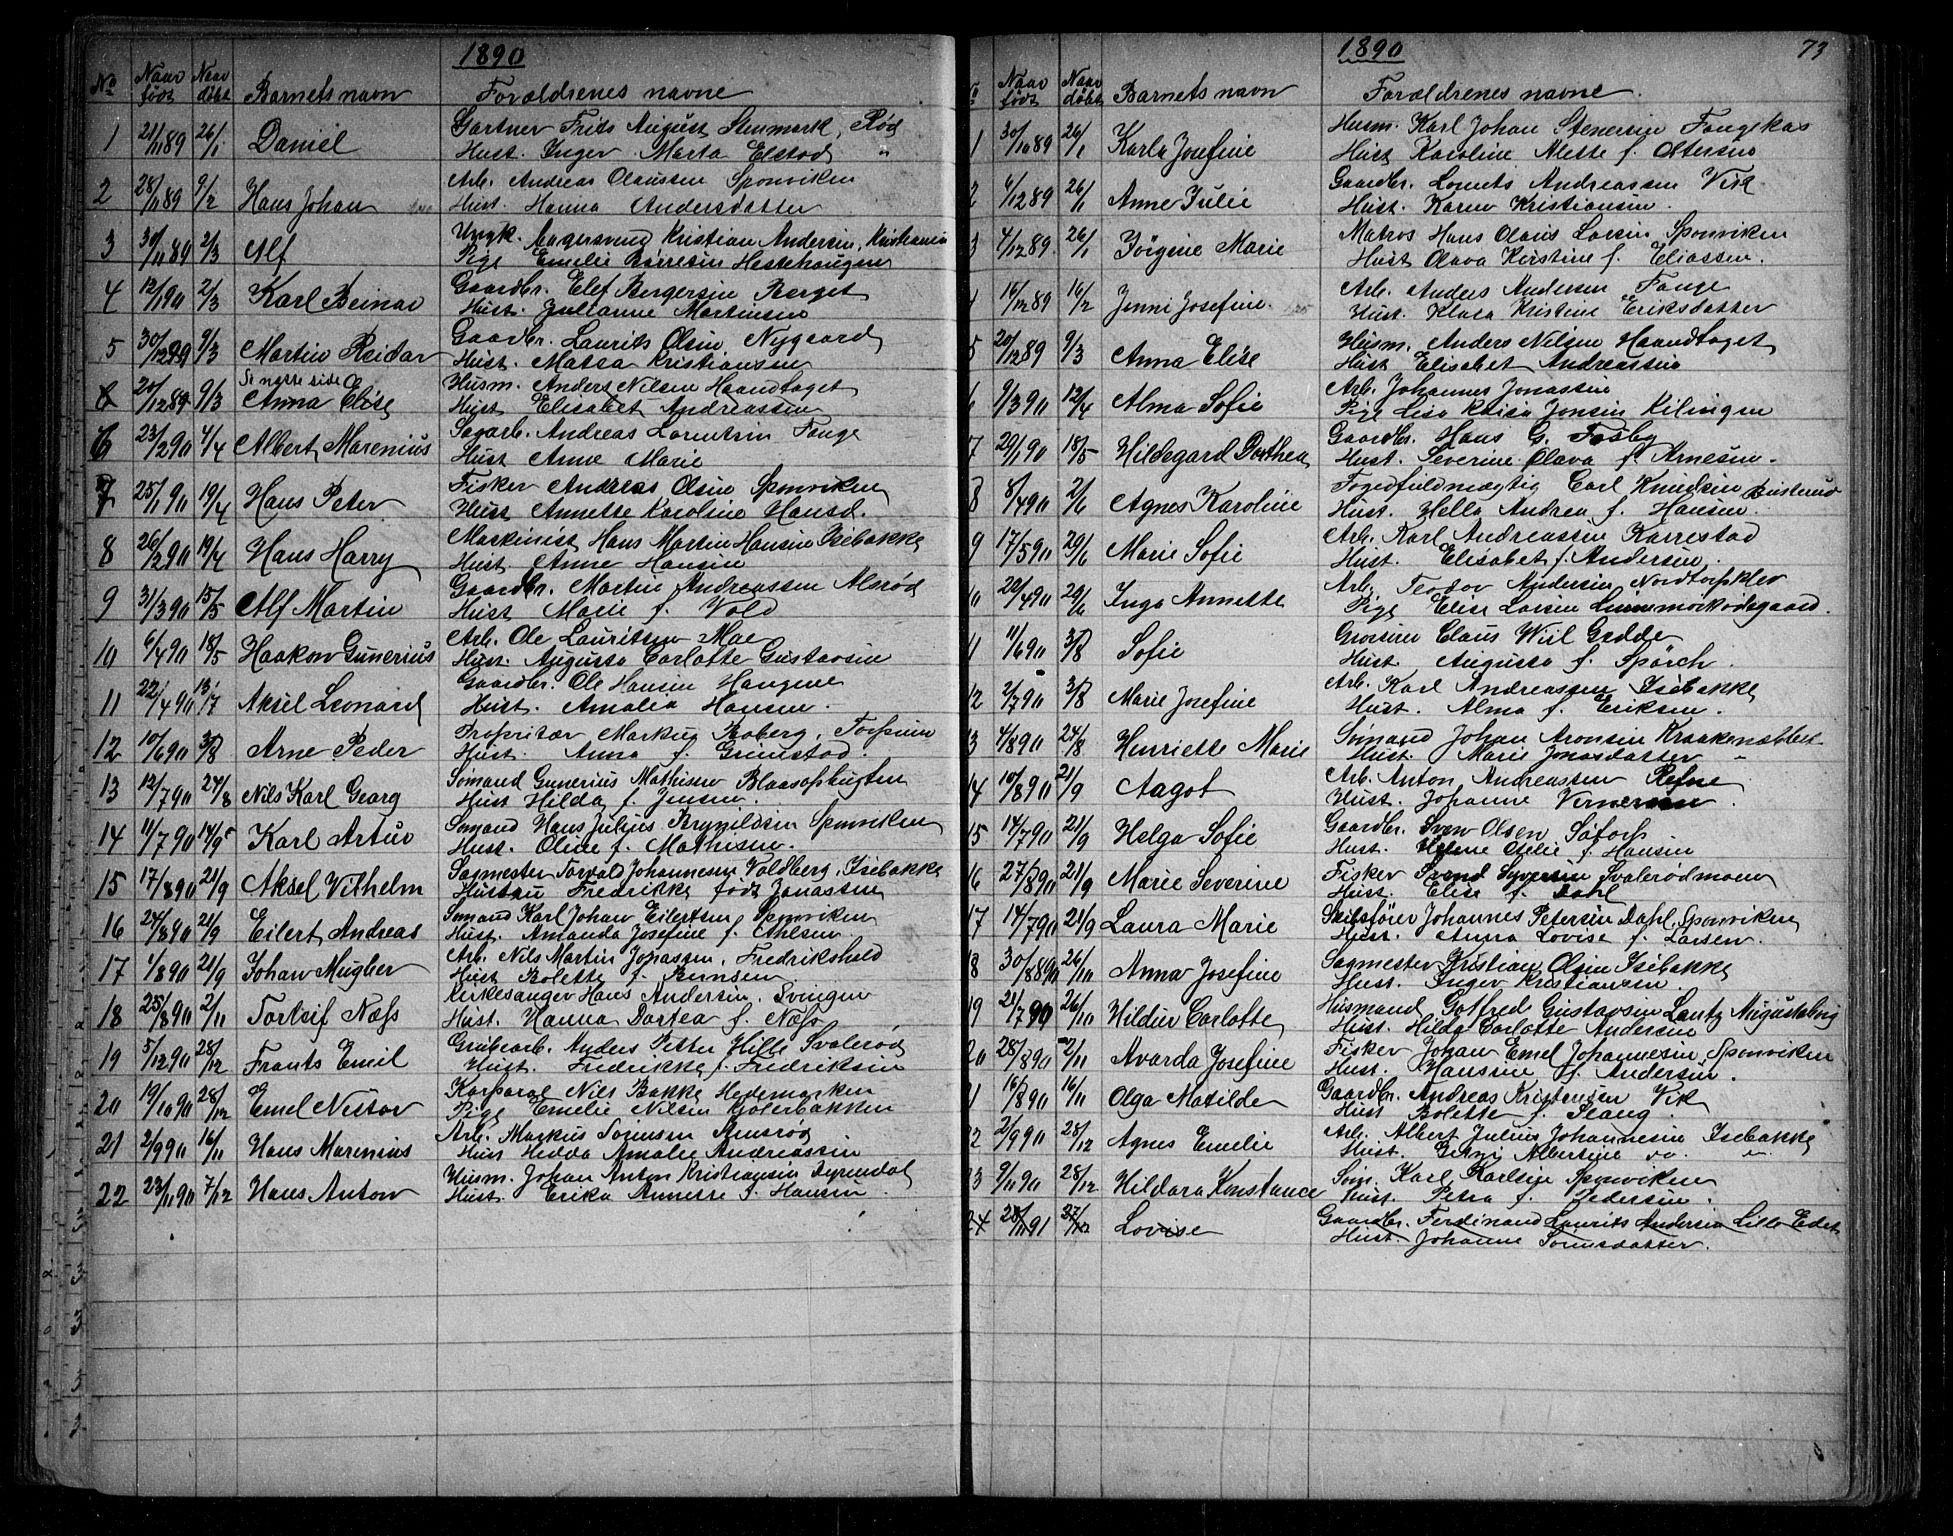 1890
No Naar født Naar døbt Barnets navn Forældrenes navne
1 21/11 89 26/1 Daniel Gartner Frits August Stenmark, Rød
Hust. Inger Marta Elstad "
2 28/11 89 9/2 Hans Johan Arb. Andreas Claussen Sponviken
Hust. Hanna Andersdatter
3 30/11 89 2/3 Alf Ungk. Kristian Andersen, Kristiania
Pige Emelie Borresen Hestehaugen
4 12/1 90 2/3 Karl Beinar Gaardbr. Elef Bergersen Berget
Hust. Julianne Martinsen
5 30/12 89 9/3 Martin Reidar Gaardbr. Laurits Olsen Nygaard
Hust. Matea Kristiansen
Se næste side
6 20/12 89 9/3 Anna Elise Husm. Anders Nilsen Haandtaget
Hust Elisabet Andreassen
6 23/2 90 4/4 Albert Marenius Sagarb. Andreas Lorentsen Fange
Hust Anne Marie
7 25/1 90 19/4 Hans Peter Fisker Andreas Olsen Sponviken
Hust Annette Karoline Hansd.
8 26/2 90 19/4 Hans Harry Maskinist Hans Martin Hansen Isebakke
Hust Anne Hansen
9 31/3 90 15/5 Alf Martin Gaardbr. Martin Andreassen Alsrød
Hust Marie f. Vold
10 6/4 90 18/5 Haakon Gunerius Arb. Ole Lauritsen Mae
Hust. Augusta Carlotte Gustavsen
11 22/4 90 13/7 Aksel Leonard Gaardbr. Ole Hansen Haugene
Hust. Amalia Hansen.
12 10/6 90 3/8 Arne Peder Propritær Markus Boberg, Torpum
Hust. Anna f. Grimstad.
13 12/7 90 24/8 Nils Karl Georg Sømand Gunerius Mathisen Blaasophugten
Hust Hilda f. Jensen.
14 11/7 90 14/9 Karl Artur Sømand Hans Julius Brynildsen Sponviken
Hust. Oline f. Mathisen.
15 17/8 90 21/9 Aksel Vilhelm Sagmester Torvald Johannesen Voldberg, Isebakke
Hustru Fredrikke født Jonassen
16 24/8 90 21/9 Eilert Andreas Sømand Karl Johan Eilertsen Sponviken
Hust. Amanda Josefine f. Ahlsen.
17 1/8 90 21/9 Johan Mugber Arb. Nils Martin Jonassen, Fredrikshald
Hust Bolette f. Bernsen
18 25/8 90 2/11 Torleif Næss Kirkesanger Hans Andersen, Svingen
Hust. Hanna Dortea f. Næss
19 5/12 90 28/12 Frants Emil Grubearb. Anders Petter Hille Svalerød
Hust. Fredrikke f. Fredriksen
20 19/10 90 28/12 Emel Nestor Korporal Nils Bakke Hedemarken
Pige Emelie Nilsen Golerbakken
21 2/9 90 16/11 Hans Marenius Arb. Markus Sørensen Remsrød
Hust Hedda Amalie Andreassen
22 23/11 90 7/12 Hans Anton Husm. Johan Anton Kristiansen Dyrendal
Hust. Erika Annette f. Hansen.
1890 73
Naar født Naar døbt Barnets navn Forældrenes navne.
1 30/11 89 26/1 Karla Josefine Husm. Karl Johan Stenersen Fangekas
Hust Karoline Alette f. Ottersen
2 6/12 89 26/1 Anne Julie Gaardbr. Lorents Andreassen Vik
Hust. Karen Kristiansen.
3 4/12 89 26/1 Jörgine Marie Matros Hans Olaus Larsen Sponviken
Hust Olava Kerstine f. Eliassen.
4 16/12 89 16/2 Jenni Josefine. Arb. Anders Andersen Fange
Hust. Klara Kristine Eriksdatter
5 20/12 89 9/3 Anna Elise Husm. Anders Nilsen Haandtaget
Hust Elisabet Andreassen
6 9/3 90 12/4 Alma Sofie Arb. Johannes Jonassen
Pige Lisa Kaisa Jonsen Kilingen
7 29/1 90 18/5 Hildegard Dorthea Gaardbr. Hans G. Fosby
Hust. Severine Olava f. Arnesen.
8 8/4 90 2/6 Agnes Karoline Fogedfuldmægtig Carl Knudsen Buskerud
Hust. Hella Andrea f. Hansen.
9 17/5 90 29/6 Marie Sofie Arb. Karl Andreassen Karrestad
Hust. Elisabet f. Andersen.
10 20/4 90 29/6 Inga Annette Arb. Teodor Andersen, Nordtorpklev
Pige Elise Larsen Lunnmorködegaard.
11 11/6 90 3/8 Sofie Grosserer Claus Wiel Gedde
Hust. Augusta f. Spörch.
12 2/7 90 3/8 Marie Josefine Arb. Karl Andreassen Isebakke
Hust. Alma f. Eriksen.
13 4/8 90 24/8 Henriette Marie Sømand Johan Aronsen Kraakenæbbet
Hust. Marie Jonasdatter "
14 10/8 90 21/9 Aagot Arb. Anton Andreassen Refne
Hust. Johanne Vernersen.
15 14/7 90 21/9 Helga Sofie Gaardbr. Sven Olsen Sätorp
Hust. Helene Otelie f. Hansen
16 27/8 90 21/9 Marie Severine Fisker Svend Syversen Svalerødmoen
Hust. Elise f. Dahl
17 14/7 90 21/9 Laura Marie Skibsfører Johannes Petersen Dahl, Sponviken
Hust. Anna Lovise f. Larsen.
18 30/8 89 26/10 Anna Josefine Sagmester Kristian Olsen Isebakke
Hust. Inger Kristiansen.
19 21/7 90 26/10 Hildur Carlotte Husmand Gotfred Gustavsen Lantz Augustaborg
Hust. Hilda Carlotte Andersen
20 28/8 90 2/11 Avarda Josefine Fisker Johan Emel Johannesen, Sponviken
Hust. Hansine f. Andersen.
21 16/8 90 16/11 Olga Matilde Gaardbr. Andreas Kristensen Vik
Hust Bolette f. Plang.
22 2/9 90 28/12 Agnes Emelie Arb. Albert Julius Johannesen Isebakke
Hust. Albertine do. "
23 9/11 90 28/12 Hildara Konstance Søm. Karl Karlsen Sponviken
Hust. Petra f. Pedersen.
24 28/11 91 27/12 Lovise Gaardbr. Ferdinand Laurits Andersen Lille Edet
Hust. Johanne Sørensdatter.